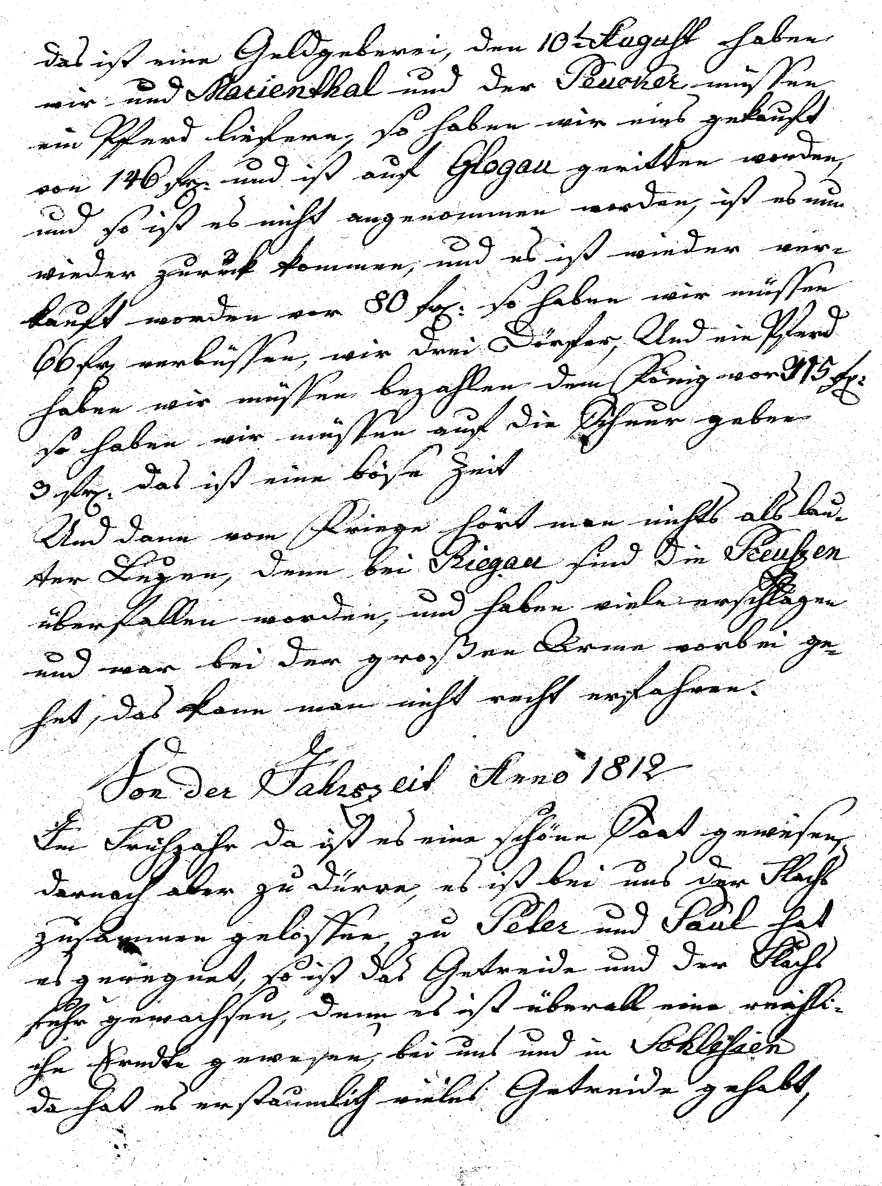 das ist eine Geldgeberei, den 10t August haben
wir und Marienthal und der Peucker müssen
ein Pferd liefern, so haben wir eins gekauft
von 146 fr: und ist auf Glogau geritten worden,
und so ist es nicht angenommen worden, ist es nun
wieder zurük kommen, und es ist wieder ver-
kauft worden vor 80 fr: so haben wir müssen
66 fr verbüssen, wir drei Dörfer, Und ein Pferd
haben wir müssen bezahlen dem König vor 115 fr:
so haben wir müssen auf die Scheur geben
3 fr: das ist eine böse Zeit
Und dann vom Kriege hört man nichts als lau-
ter Lugen, denn bei Riegau sind die Preuszen
überfallen worden, und haben viele erschlagen
und war bei der großen Arme vorbei ge-
het, das kann man nicht recht erfahren.
Von der Jahrszeit Anno 1812
Im Frühjahr da ist es eine schöne Saat gewesen,
darnach aber zu dürre, es ist bei uns der Flachs
zusammen gelossen, zu Peter und Paul hat
es geregnet, so ist das Getreide und der Flachs
sehr gewachsen, denn es ist überall eine reichli-
che Erndte gewesen, bei uns und in Schlesien
da hat es erstaunlich vieles Getreide gehabt,